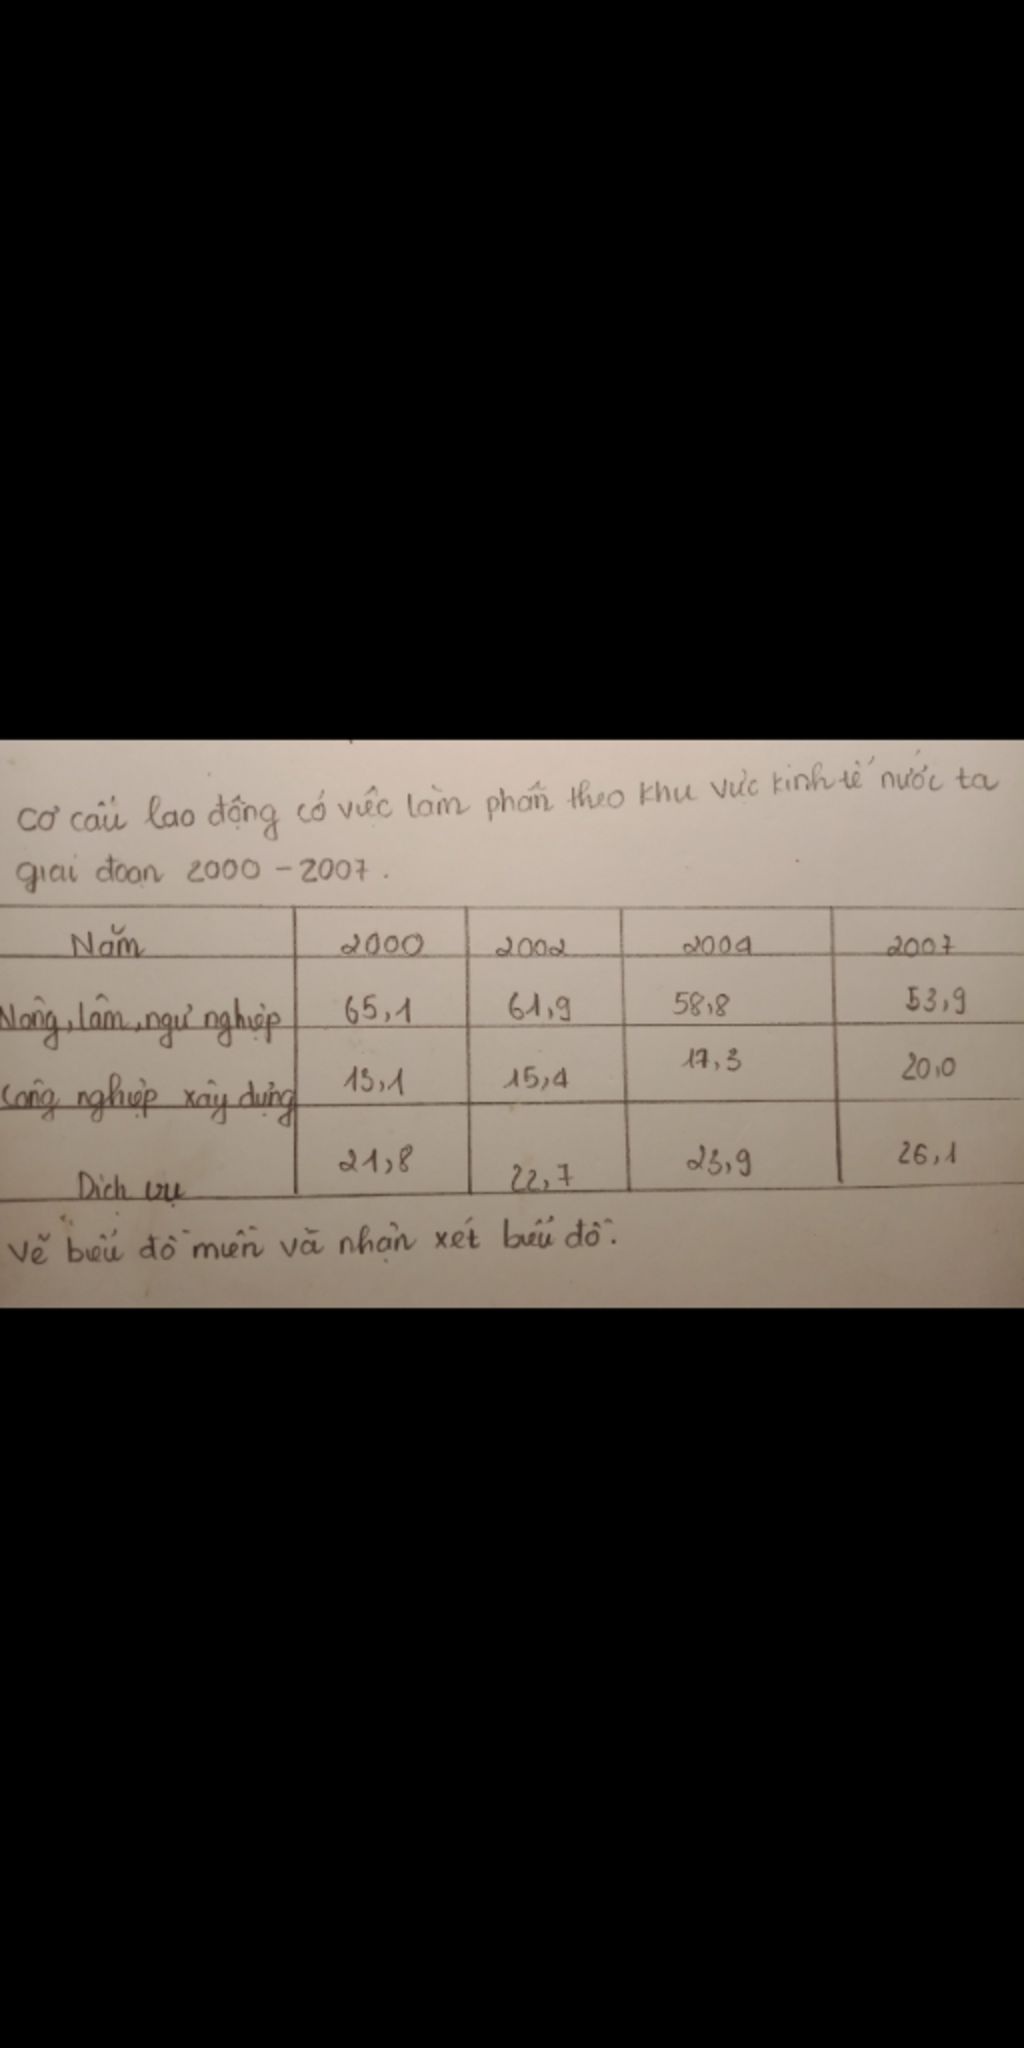 Cơ cấu lao động có việc làm phân theo khu vực kinh tế nước ta
giai đoạn 2000 - 2007.
Năm 2000 2002 2004 2007
Nông, lâm, ngư nghiệp 65,1 61,9 58,8 53,9
Công nghiệp xây dựng 13,1 15,4 17,3 20,0
Dịch vụ 21,8 22,7 23,9 26,1
Vẽ biểu đồ miền và nhận xét biểu đồ.